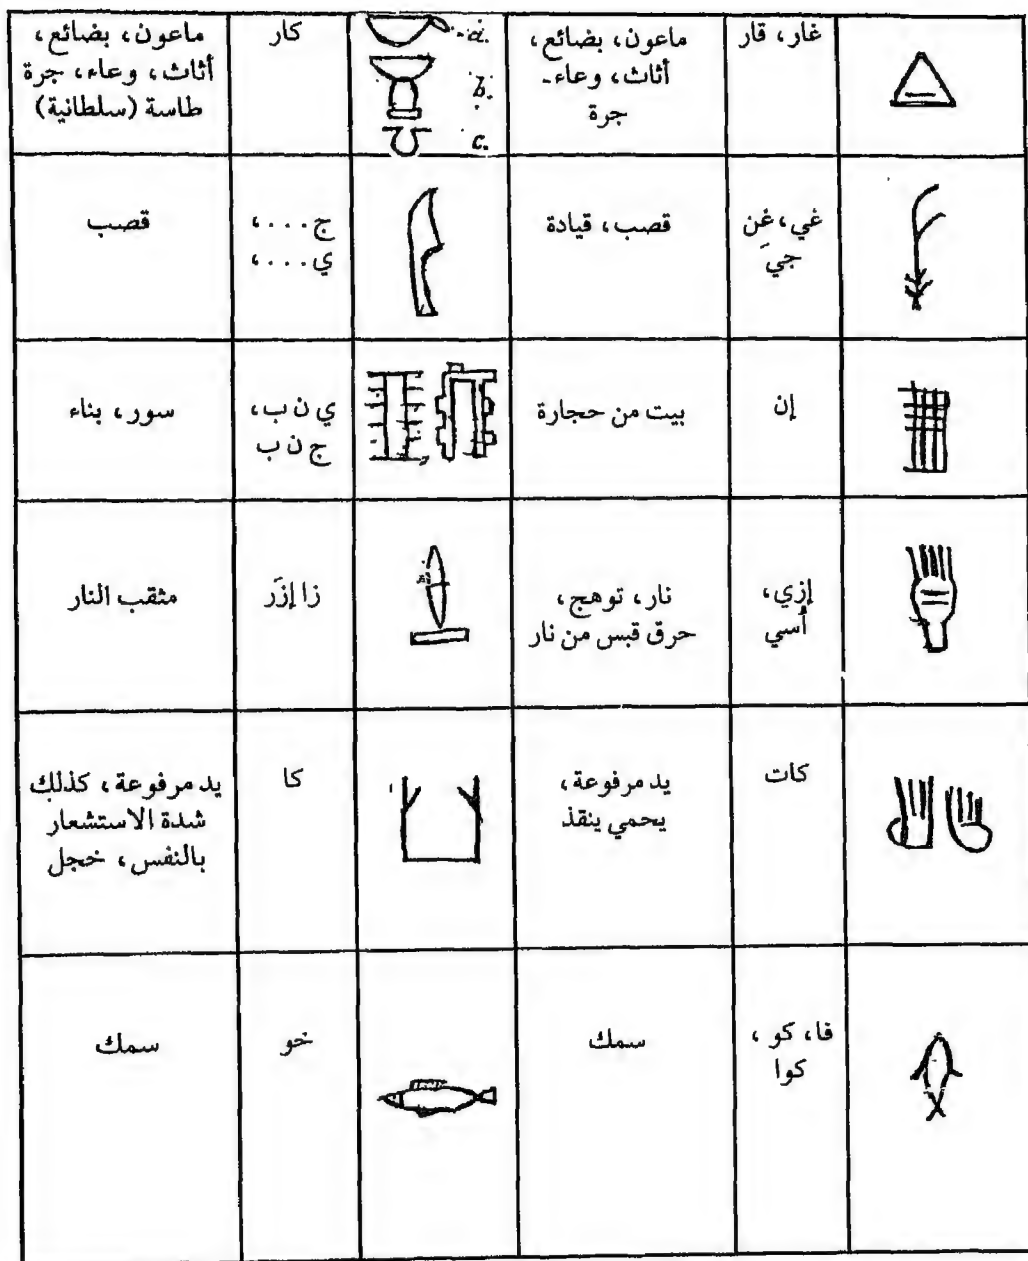 غار، قار
ماعون، بضائع،
أثاث، وعاء-
جرة
a.
b.
c.
كار
ماعون، بضائع،
أثاث، وعاء، جرة
طاسة (سلطانية)
غي، غن
جيَ
قصب، قيادة
ج....،
ي....،
قصب
إن
بيت من حجارة
ي ن ب،
ج ن ب
سور، بناء
إزي،
أسي
نار، توهج،
حرق قبس من نار
زا إزَر
مثقب النار
كات
يد مرفوعة،
يحمي ينقذ
كا
يد مرفوعة، كذلك
شدة الاستشعار
بالنفس، خجل
فا، كو،
كوا
سمك
خو
سمك